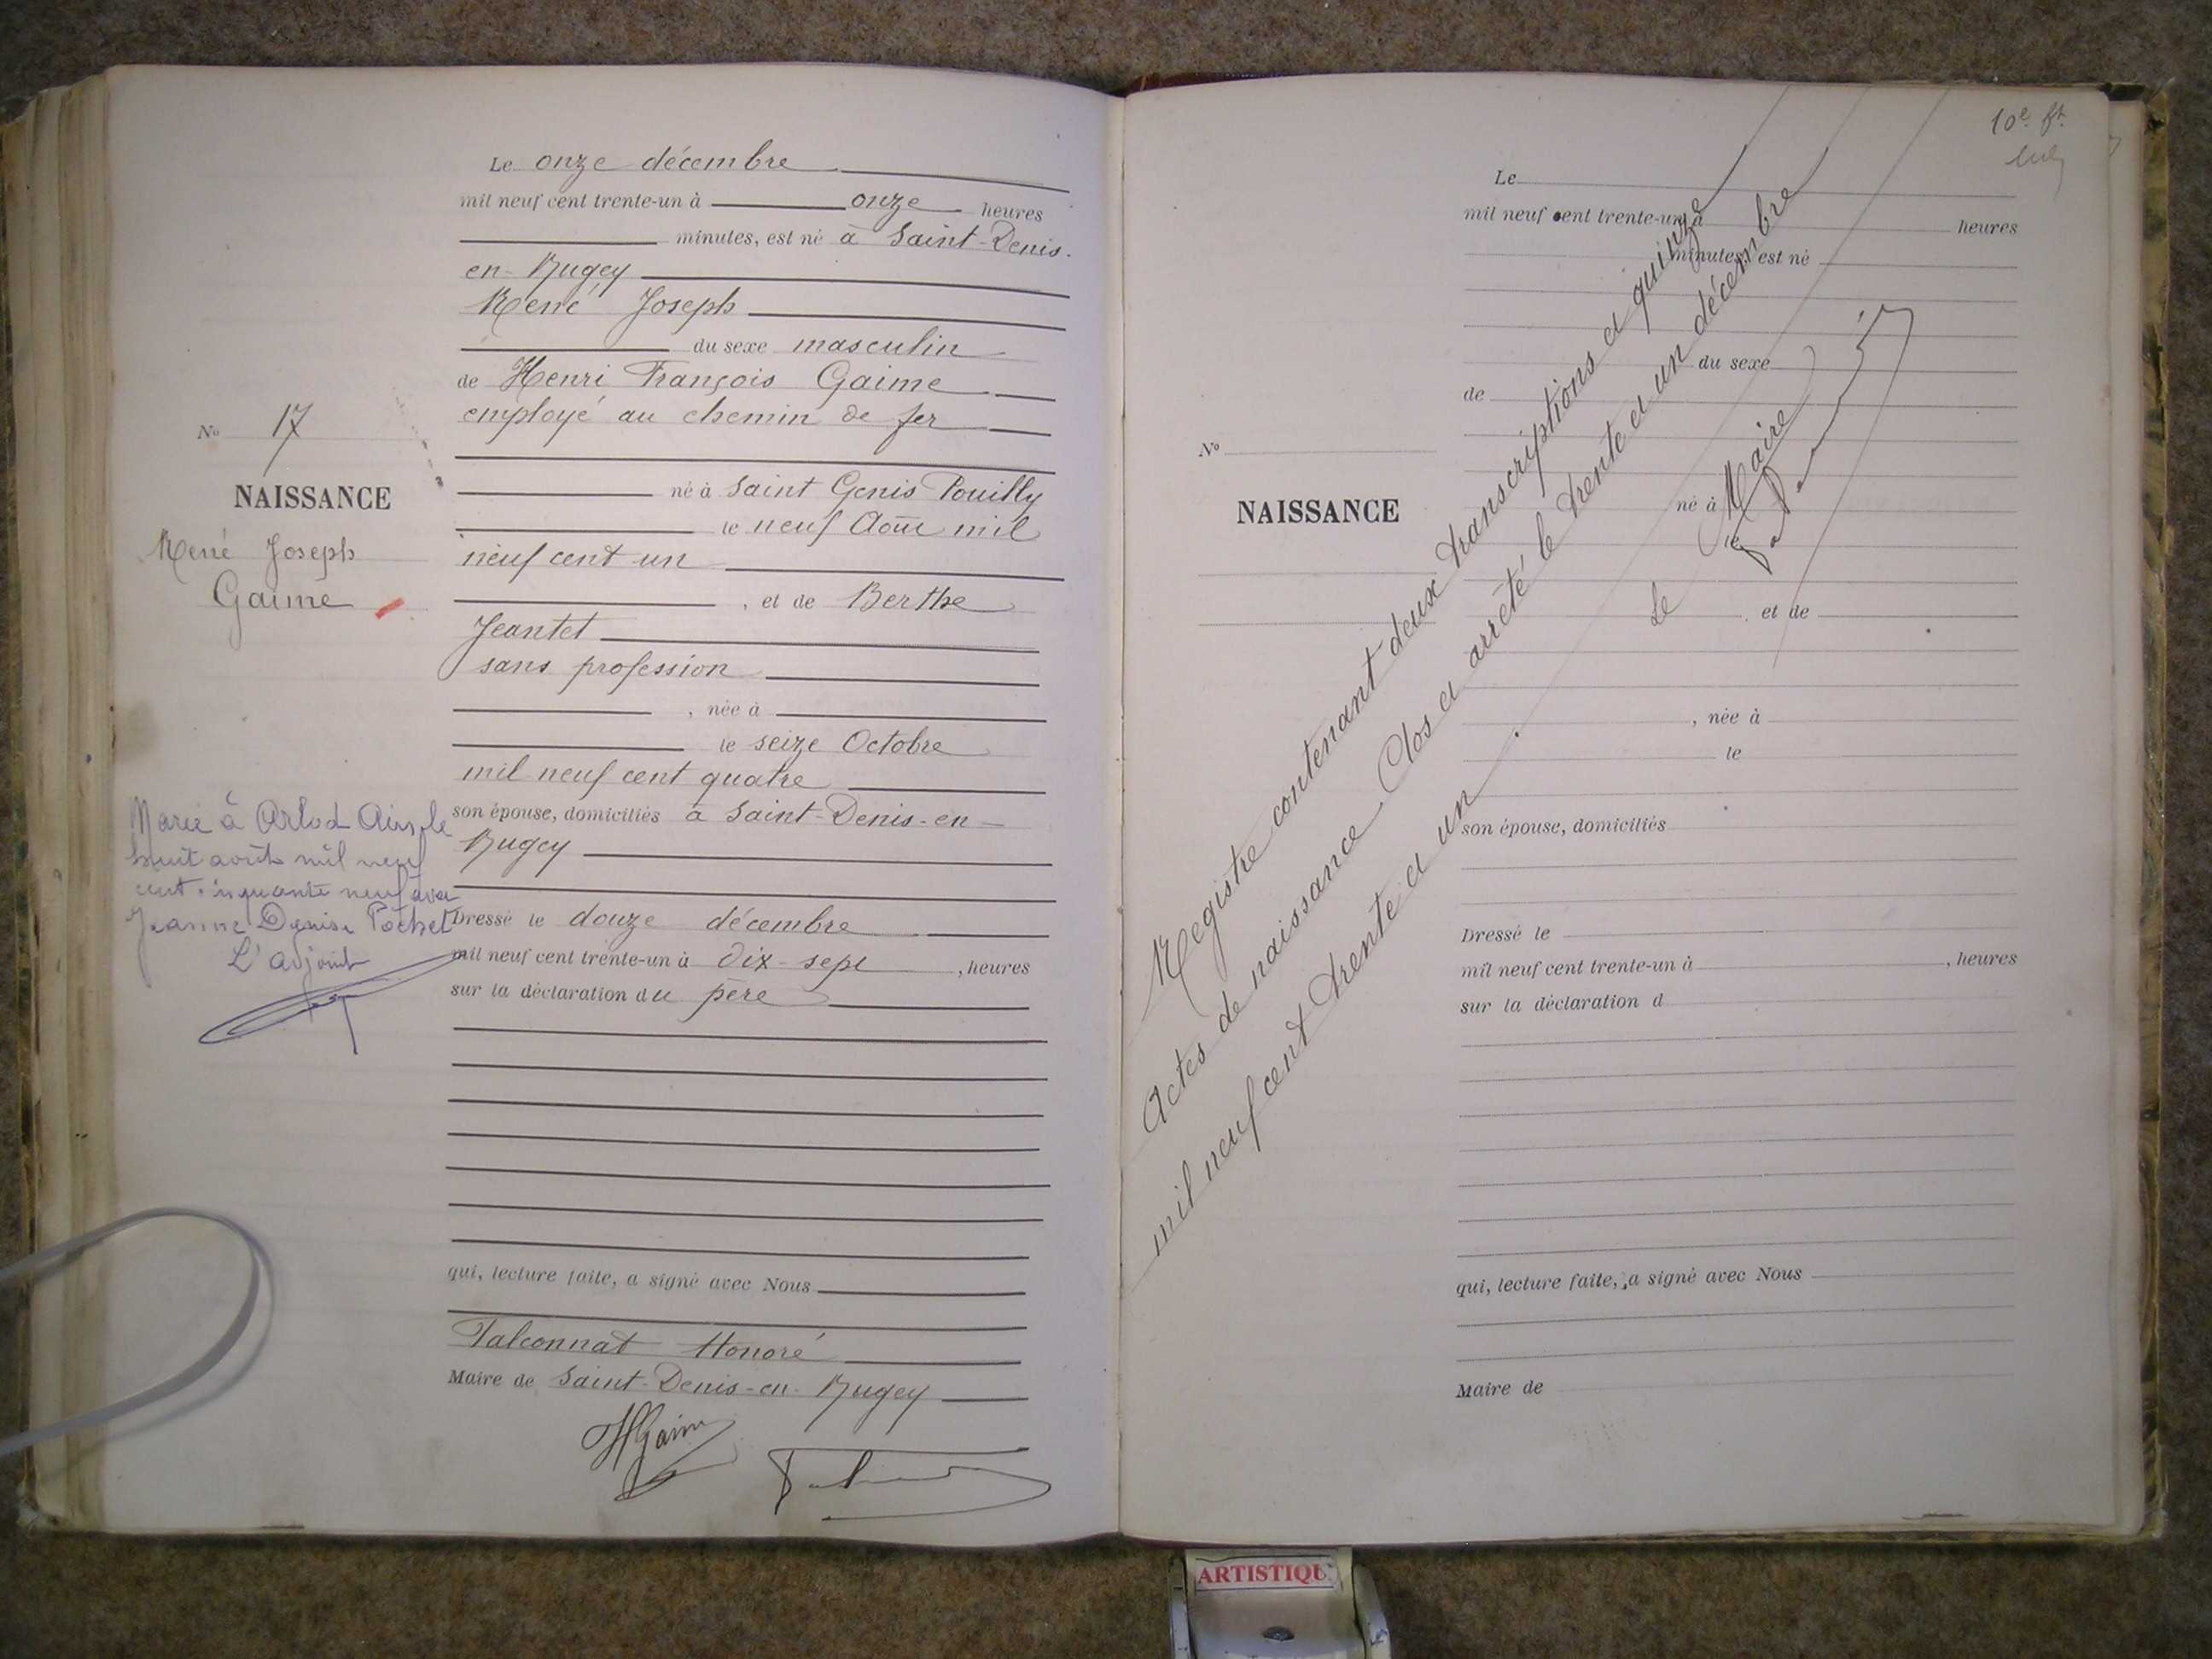 Le onze décembre
mil neuf cent trente-un à onze heures
minutes, est né à Saint-Denis-
en-Bugey
René Joseph
du sexe masculin
de Henri François Gaime
employé au chemin de fer
né à Saint Genis Pouilly
le neuf Août mil
neuf cent un
, et de Berthe
Jeantet
sans profession
, née à
le seize Octobre
mil neuf cent quatre
son épouse, domiciliés à Saint-Denis-en-
Bugey
Dressé le douze décembre
mil neuf cent trente-un à dix-sept , heures
sur la déclaration du père
qui, lecture faite, a signé avec Nous
Falconnat Honoré
Maire de Saint-Denis-en-Bugey
HGaime
No 17
NAISSANCE
René Joseph
Gaime
Marié à Arlod Ain, le
huit août mil neuf
cent cinquante neuf avec
Jeanne Denise Pochet
L'adjoint
10e ft
Le
mil neuf cent trente-un à heures
minutes, est né
du sexe
de
né à
le
, et de
, née à
le
son épouse, domiciliés
Dressé le
mil neuf cent trente-un à , heures
sur la déclaration d
qui, lecture faite, a signé avec Nous
Maire de
No
NAISSANCE
Registre contenant deux transcriptions et quinze
Actes de naissance Clos et arrêté le trente et un décembre
mil neuf cent trente et un.
Le Maire
ARTISTIQU